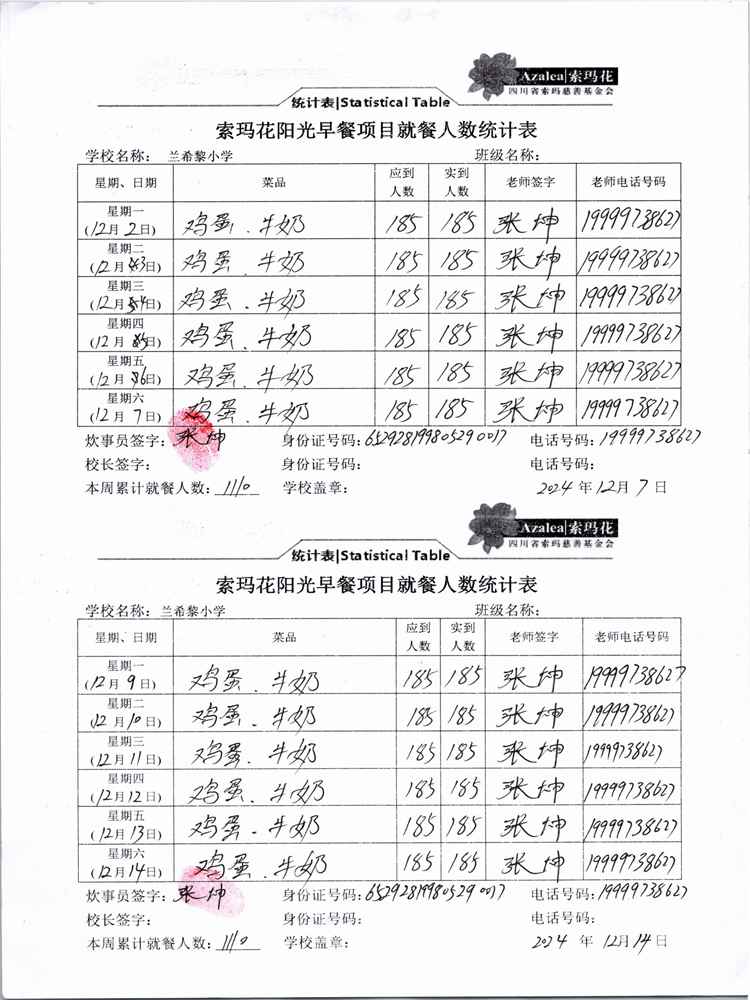 Azalea|索玛花
四川省索玛慈善基金会
统计表|Statistical Table
索玛花阳光早餐项目就餐人数统计表
学校名称： 兰希黎小学 班级名称：
星期、日期 菜品 应到人数 实到人数 老师签字 老师电话号码
星期一 (12月2日) 鸡蛋.牛奶 185 185 张坤 19999738627
星期二 (12月3日) 鸡蛋.牛奶 185 185 张坤 19999738627
星期三 (12月4日) 鸡蛋.牛奶 185 185 张坤 19999738627
星期四 (12月5日) 鸡蛋.牛奶 185 185 张坤 19999738627
星期五 (12月6日) 鸡蛋.牛奶 185 185 张坤 19999738627
星期六 (12月7日) 鸡蛋.牛奶 185 185 张坤 19999738627
炊事员签字： 张坤 身份证号码：652928199805290017 电话号码：19999738627
校长签字： 身份证号码： 电话号码：
本周累计就餐人数：1110 学校盖章： 2024年12月7日
Azalea|索玛花
四川省索玛慈善基金会
统计表|Statistical Table
索玛花阳光早餐项目就餐人数统计表
学校名称： 兰希黎小学 班级名称：
星期、日期 菜品 应到人数 实到人数 老师签字 老师电话号码
星期一 (12月9日) 鸡蛋.牛奶 185 185 张坤 19999738627
星期二 (12月10日) 鸡蛋.牛奶 185 185 张坤 19999738627
星期三 (12月11日) 鸡蛋.牛奶 185 185 张坤 19999738627
星期四 (12月12日) 鸡蛋.牛奶 185 185 张坤 19999738627
星期五 (12月13日) 鸡蛋.牛奶 185 185 张坤 19999738627
星期六 (12月14日) 鸡蛋.牛奶 185 185 张坤 19999738627
炊事员签字： 张坤 身份证号码：652928199805290017 电话号码：19999738627
校长签字： 身份证号码： 电话号码：
本周累计就餐人数：1110 学校盖章： 2024年12月14日